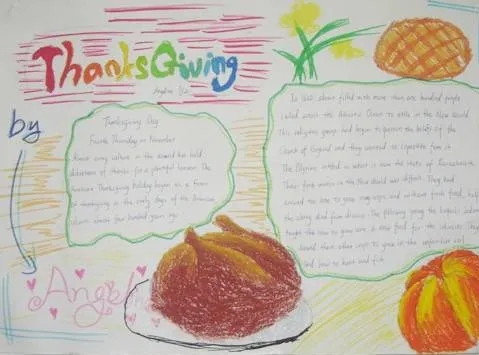 ThanksGiving
Angelina
by
Thanksgiving Day
Fourth Thursday in November
Almost every culture in the world has held
celebrations of thanks for a plentiful harvest. The
American Thanksgiving holiday began as a feast
of thanksgiving in the early days of the American
colonies almost four hundred years ago.
In 1620, a boat filled with more than one hundred people
sailed across the Atlantic Ocean to settle in the New World.
This religious group had begun to question the beliefs of the
Church of England and they wanted to separate from it.
The Pilgrims settled in what is now the state of Massachusetts.
Their first winter in the New World was difficult. They had
arrived too late to grow many crops, and without fresh food, half
the colony died from disease. The following spring the Iroquois Indians
taught them how to grow corn, a new food for the colonists. They
showed them other crops to grow in the unfamiliar soil
and how to hunt and fish.
Angel